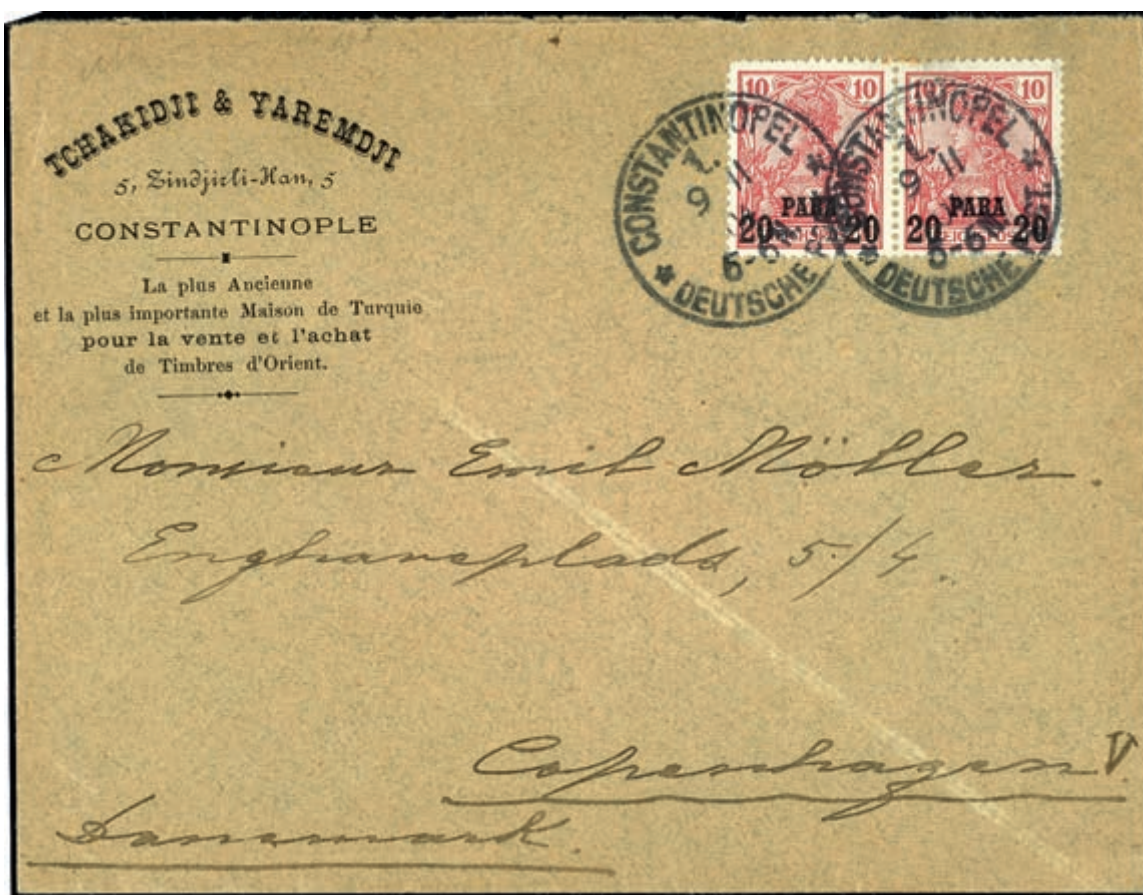 TCHAKIDJI & YAREMDJI
5, Zindjirli-Han, 5
CONSTANTINOPLE
La plus Ancienne
et la plus importante Maison de Turquie
pour la vente et l'achat
de Timbres d'Orient.
10 10
PARA
20 20
10 10
PARA
20 20
CONSTANTINOPEL
9 11
DEUTSCHE
CONSTANTINOPEL
9 11
DEUTSCHE
Monsieur Emil Möller.
Enghaveplads, 5/4.
Copenhagen V.
Danemark.